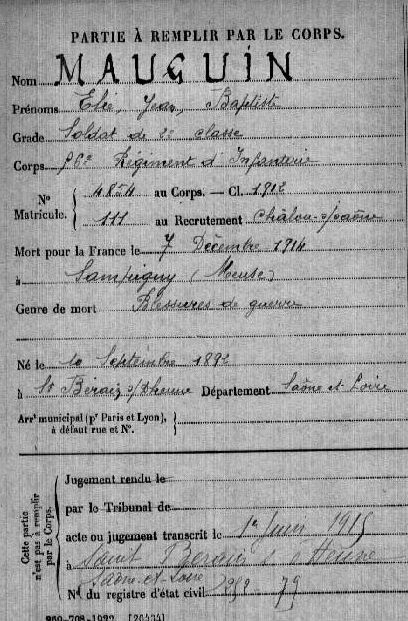 PARTIE À REMPLIR PAR LE CORPS.
Nom MAUGUIN
Prénoms Jean, Baptiste
Grade Soldat de 2e classe
Corps Régiment d'Infanterie
No Matricule. { 4854 au Corps. — Cl. 1912
111 au Recrutement Châlon-s/saône
Mort pour la France le 7 Décembre 1914
à Sampigny (Meuse)
Genre de mort Blessures de guerre
Né le 10 Septembre 1892
à St Bérain s/Dheune Département Saône et Loire
Arrt municipal (pr Paris et Lyon), à défaut rue et No.
Cette partie n'est pas à remplir par le Corps.
Jugement rendu le
par le Tribunal de
acte ou jugement transcrit le 1er Juin 1915
à Saint Berain s
Saône-et-Loire
No du registre d'état civil 79